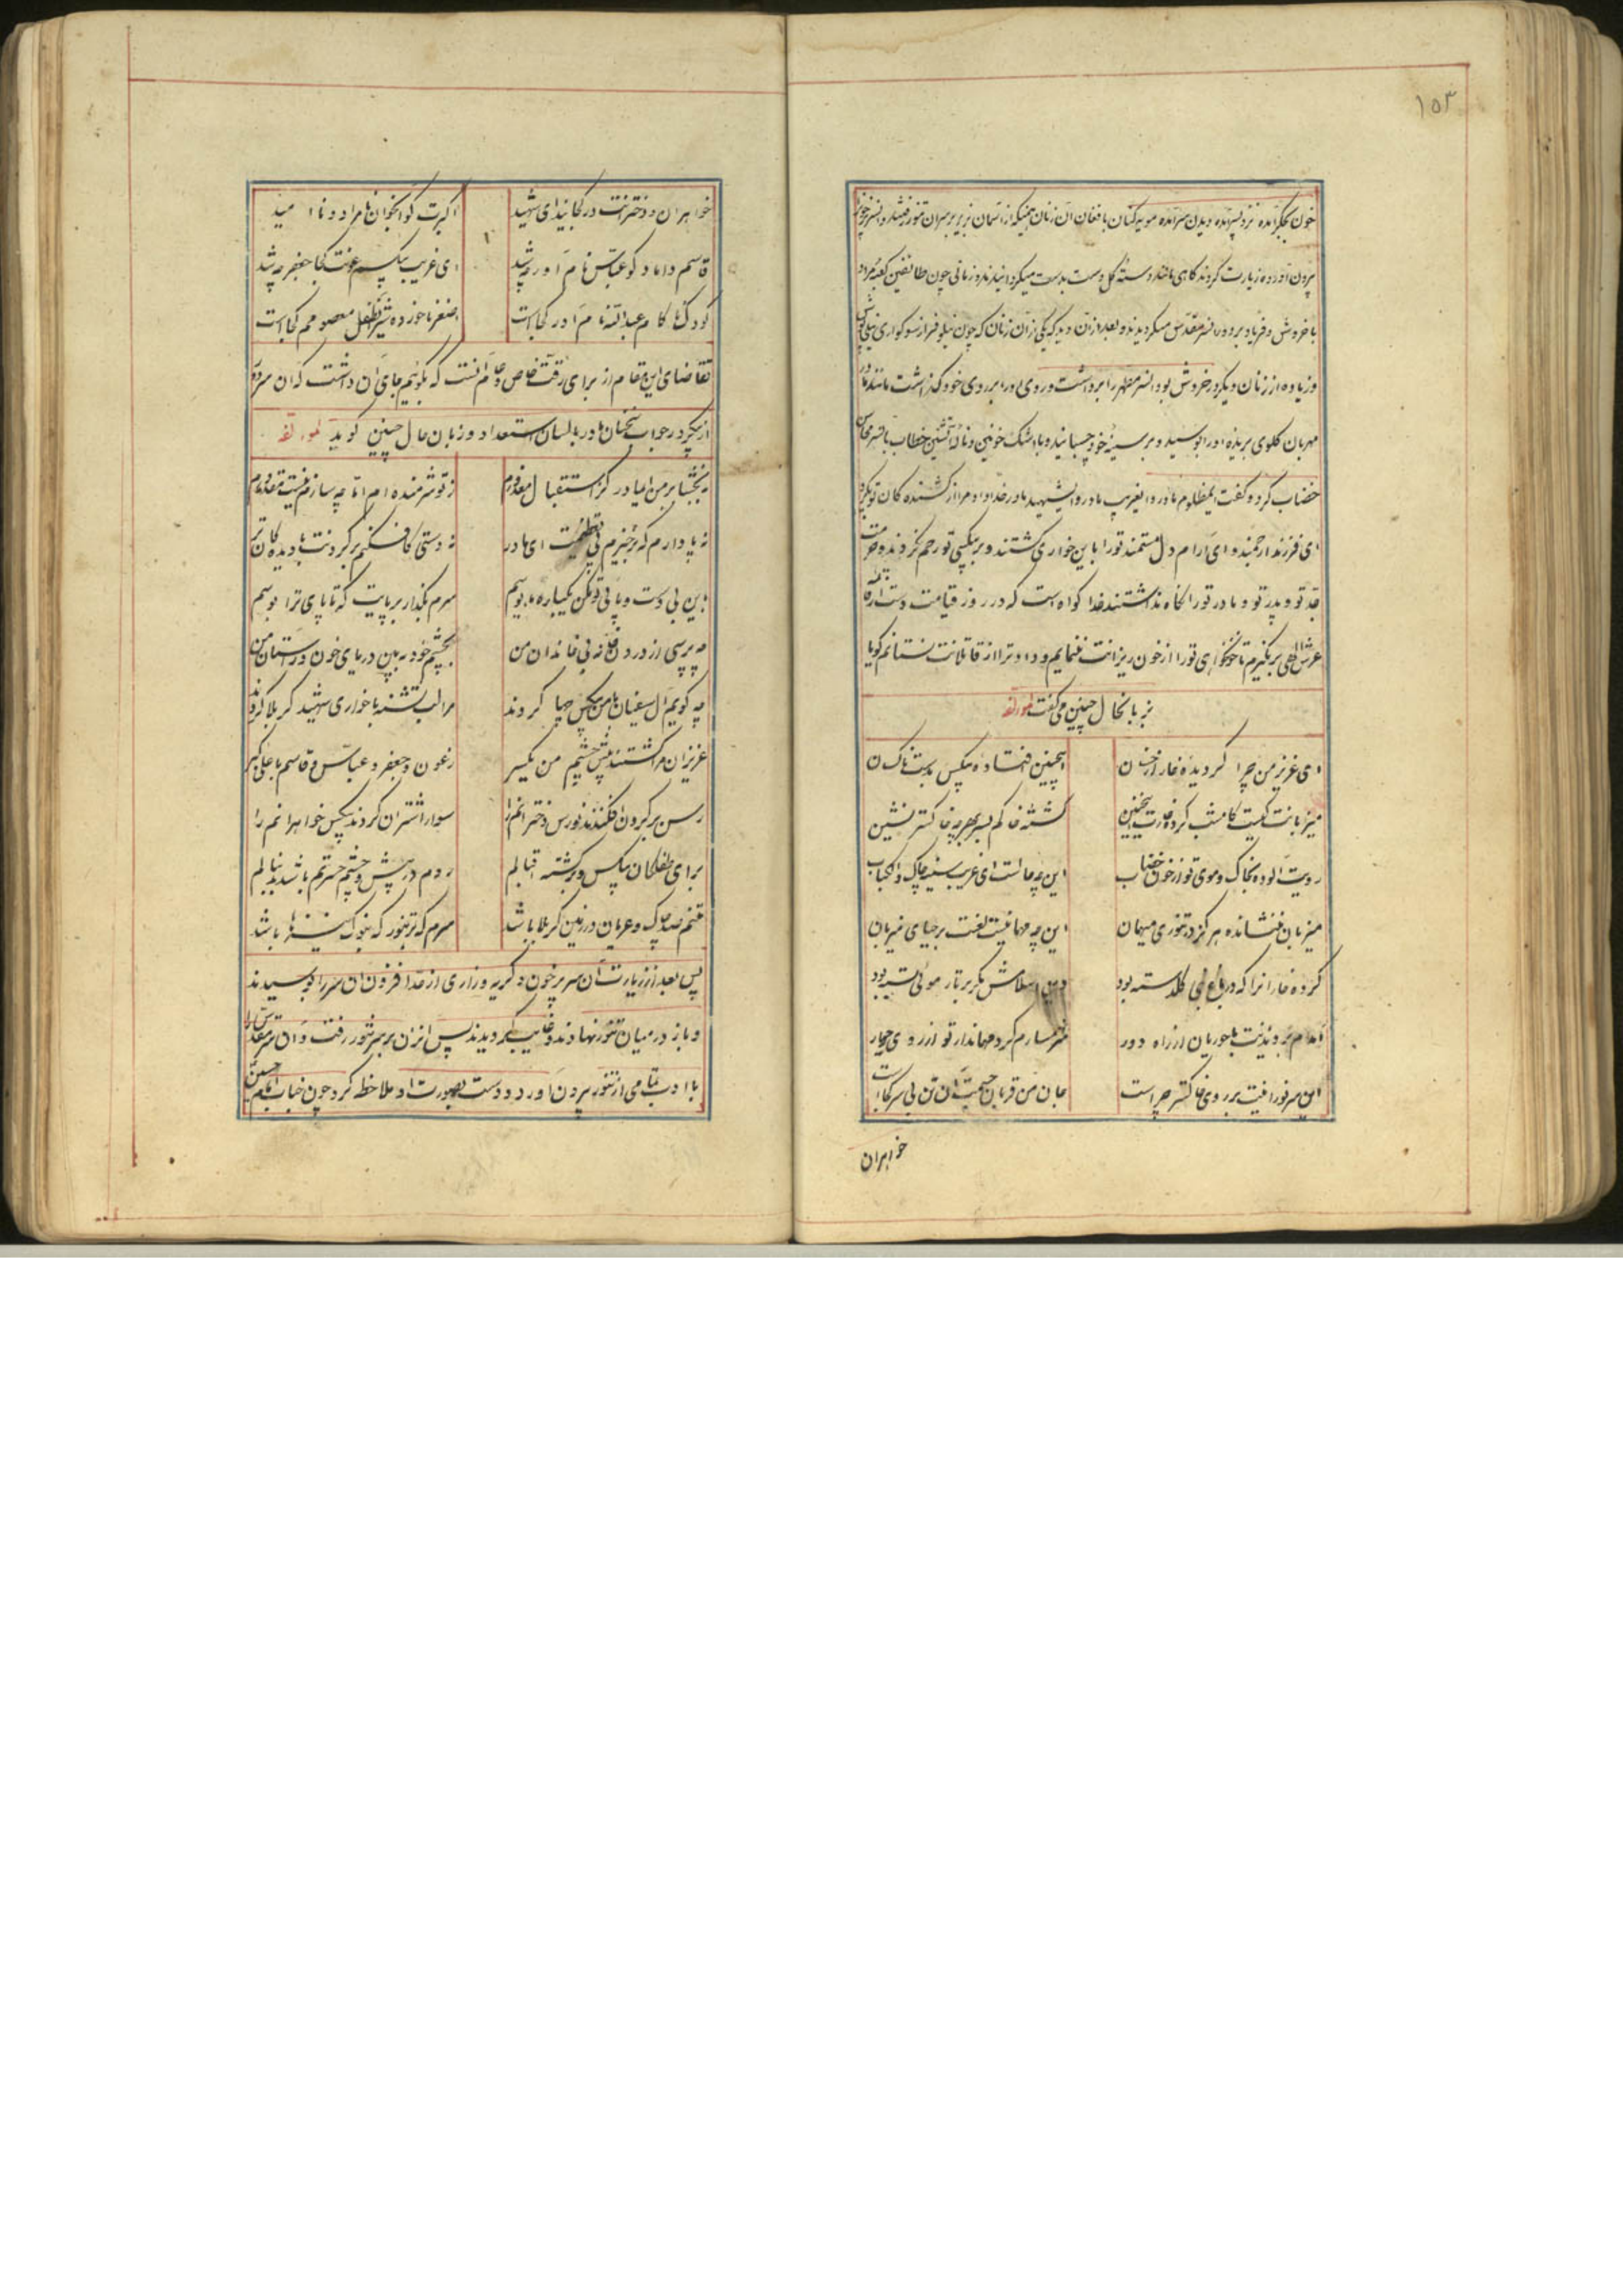 ۱۵۳
خون جگر آمده نزد پسر آمده بدیدن سر آمده مویه کنان با فغان آن زنان همینکه از آسمان بزیر بر سر آن تنور رفتند و آنسر پر خون
بیرون آورده زیارت کردند گاهی مانند دسته گل دست بدست میگردانیدند و زمانی چون طائفین کعبه مراد
با خروش و فریاد بر دور آنسر مقدس میگردیدند و بعد از آن دید که یکی از آن زنان که چون نیلوفر از سوکواری نیلی پوش
و زیاده از زنان دیگر در خروش بود آنسر مطهر را برداشت و روی او را بر روی خود گذاشت مانند مادر
مهربان گلوی بریده او را بوسید و بر سینه خود چسبانید و با اشک خونین و ناله آتشین خطاب بآنسر محاسن
خضاب کرد و گفت ایمظلوم مادر و ایغریب مادر و ایشهید مادر خدا داد مرا از کشنده کان تو بگیرد
ای فرزند ارجمند و ای آرام دل مستمند تو را باین خواری کشتند و بر بیکسی تو رحم نکردند و حرمت
جد تو و پدر تو و مادر تو را نگاه نداشتند خدا گواه است که در روز قیامت دست از قائمه
عرش الهی بر نگیرم تا خونخواهی تو را از خون ریزانت ننمایم و داد ترا از قاتلانت نستانم گویا
بزبانحال چنین می گفت لمؤلفه
ای عزیز من چرا گردیده خار از خسان اینچنین افتاده بیکس بدست ناکسان
میزبانت کیست کامشب کرده غارت اینچنین گشته خاکم بسر بهر چه خاکستر نشین
رویت آلوده بخاک و موی تو از خون خضاب این چه حالست ای غریب سینه چاک دلکباب
میزبان ننشانده هرگز در تنوری میهمان این چه مهمانیست لعنت بر حیای میزبان
کرده خار آنرا که در باغ نبی گلدسته بود دین اسلامش یکبر تار موئی بسته بود
آمدم بر دیدنیت با حوریان از راه دور شرمسارم کرد مهماندار تو از روی حور
این سر نورانیت بر روی خاکستر چراست جان من قربان جسمت آن تن بی سر کجاست
خواهران
خواهران و دخترانت در کجایند ای شهید اکبرت کو آنجوان نامراد و ناامید
قاسم داماد کو عباس نام آور چه شد ای غریب بیکسم عونت کجا جعفر چه شد
کودک ناکام عبدالله نام آور کجاست اصغر ناخورده شیر آن طفل معصومم کجاست
تقاضای این مقام از برای رقت خاص و عام آنست که بگوئیم جای آن داشت که آن سرور
از پیکر در جواب سخنان مادر بلسان استعداد و زبان حال چنین گوید لمؤلفه
ببخشا بر من ای مادر کز استقبال معذورم ز تو شرمنده ام اما چه سازم نیست مقدورم
نه پا دارم که بر خیزم پی تعظیمت ای مادر نه دستی کافکنم بر گردنت با دیده کان تر
باین بی دست و پائی تو کن یکباره پابوسم سرم بگذار بر پایت که تا پای ترا بوسم
چه پرسی از درد دل خانه بی خانمان من بچشم خود ببین دریای خون در آستان من
چه گویم آل سفیان با من بیکس چها کردند مرا لب تشنه با خواری شهید کربلا کردند
عزیزان مرا کشتند پیش چشم من یکسر ز عون و جعفر و عباس و قاسم با علی اکبر
رسن بر گردن افکندند نورس دخترانم را سوار اشتران کردند بیکس خواهرانم را
برای طفلکان بیکس و برگشته اقبالم روم در پیش و چشم حسرتم باشد بدنبالم
تنم صد چاک و عریان در زمین کربلا باشد سرم که در تنور که بنوک نیزه ها باشد
پس بعد از زیارت آن سر پر خون و گریه و زاری از حد افزون آن سر را بوسیدند
و باز در میان تنور نهادند و غایب گردیدند پس آنزن بر سر تنور رفت و آن سر مقدس را
با ادب تمامی از تنور بیرون آورد و دست بصورت او ملاحظه کرد چون جناب امام حسین